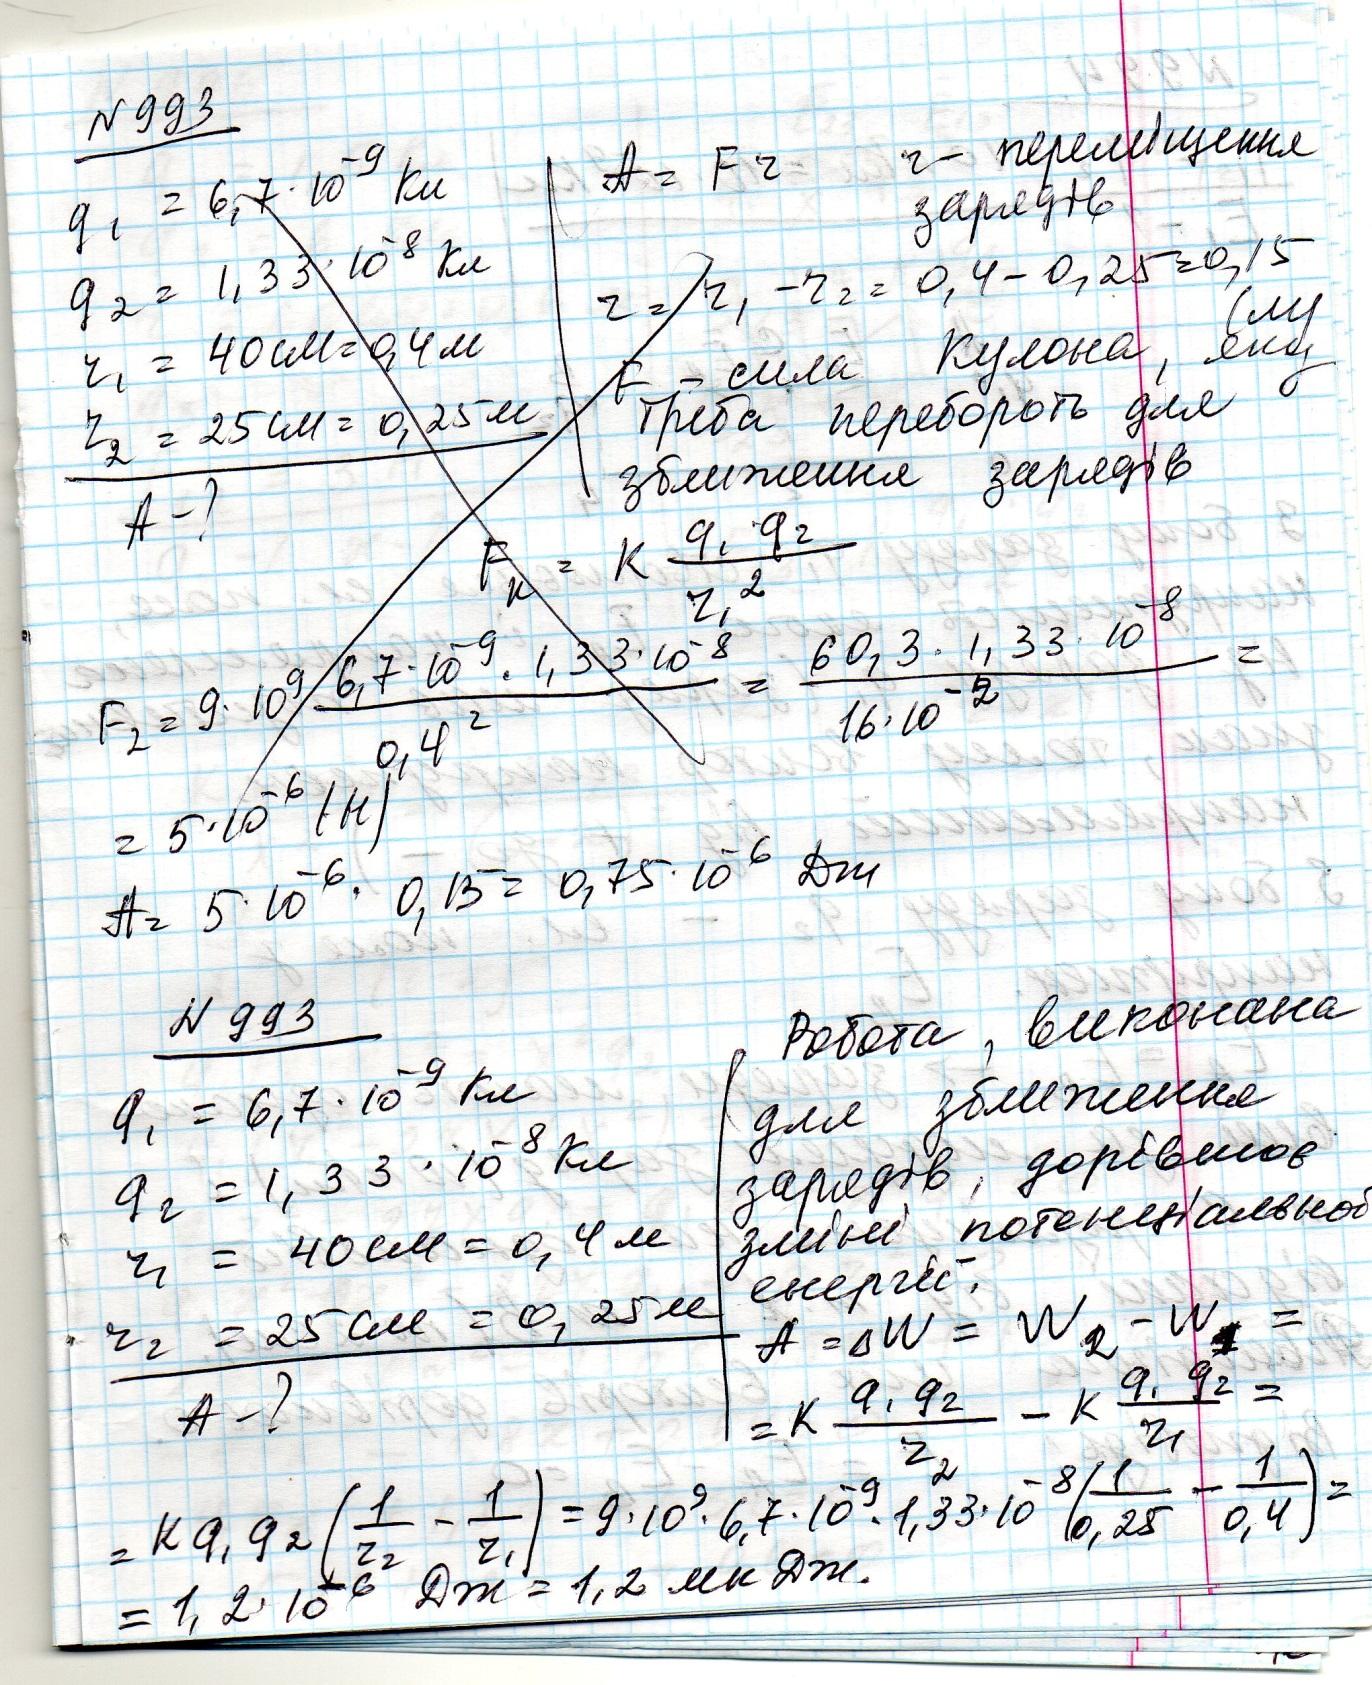 N 993
q₁ = 6,7·10⁻⁹ Кл
q₂ = 1,33·10⁻⁸ Кл
r₁ = 40 см = 0,4 м
r₂ = 25 см = 0,25 м
A - ?
A = Fr r - переміщення
зарядів
r = r₁ - r₂ = 0,4 - 0,25 = 0,15
(м)
F - сила Кулона, яку
треба перебороть для
зближення зарядів
Fк = K q₁·q₂ / r₁²
F₂ = 9·10⁹ 6,7·10⁻⁹·1,33·10⁻⁸ / 0,4² = 60,3·1,33·10⁻⁸ / 16·10⁻² =
= 5·10⁻⁶ (Н)
A = 5·10⁻⁶·0,15 = 0,75·10⁻⁶ Дж
N 993
q₁ = 6,7·10⁻⁹ Кл
q₂ = 1,33·10⁻⁸ Кл
r₁ = 40 см = 0,4 м
r₂ = 25 см = 0,25 м
A - ?
Робота, виконана
для зближення
зарядів, дорівнює
зміні потенціальної
енергії.
A = ΔW = W₂ - W₁ =
= K q₁ q₂ / r₂ - K q₁ q₂ / r₁ =
= K q₁ q₂ (1/r₂ - 1/r₁) = 9·10⁹·6,7·10⁻⁹·1,33·10⁻⁸ (1/0,25 - 1/0,4) =
= 1,2·10⁻⁶ Дж = 1,2 мкДж.